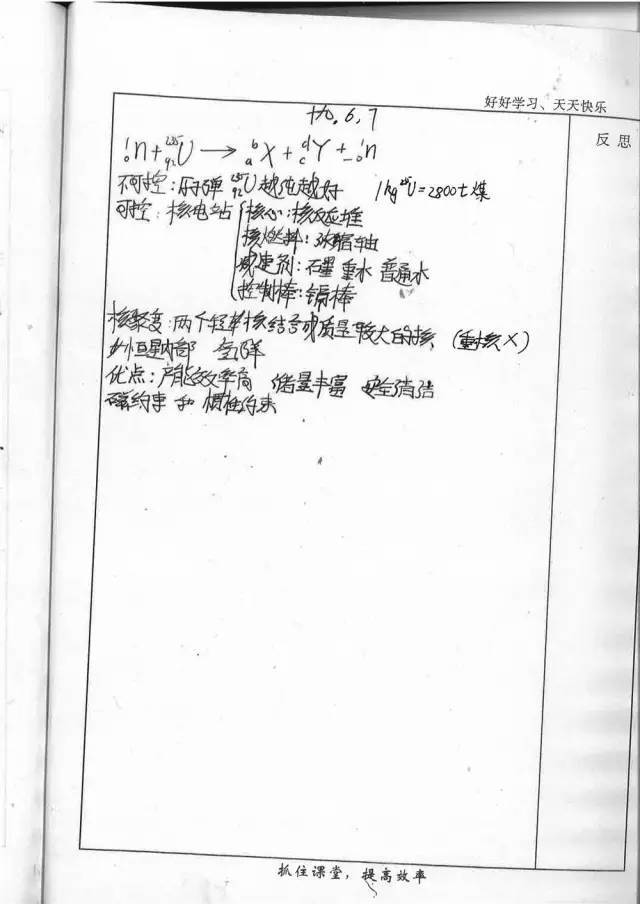 好好学习、天天快乐
反思
十九.6,7
¹₀n+²³⁵₉₂U→ᵇₐX+ᵈ꜀Y+_¹₀n
不可控:原子弹 ²³⁵₉₂U越纯越好 1kg²³⁵U=2800t煤
可控:核电站{核心:核反应堆
核燃料:浓缩铀
减速剂:石墨 重水 普通水
控制棒:镉棒
核聚变:两个轻核结合成质量较大的核 (重核×)
恒星内部 氢弹
优点:产能效率高 储量丰富 安全清洁
磁约束 和 惯性约束
抓住课堂,提高效率